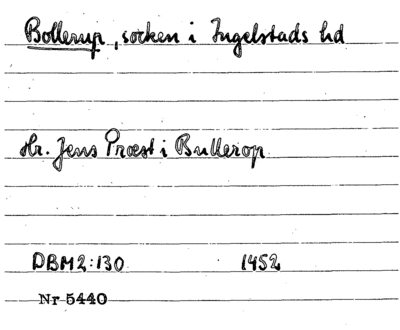 Bollerup, socken i Ingelstads hd
Hr. Jens Præst i Bullerop
DBM2:130 1452
Nr 5440